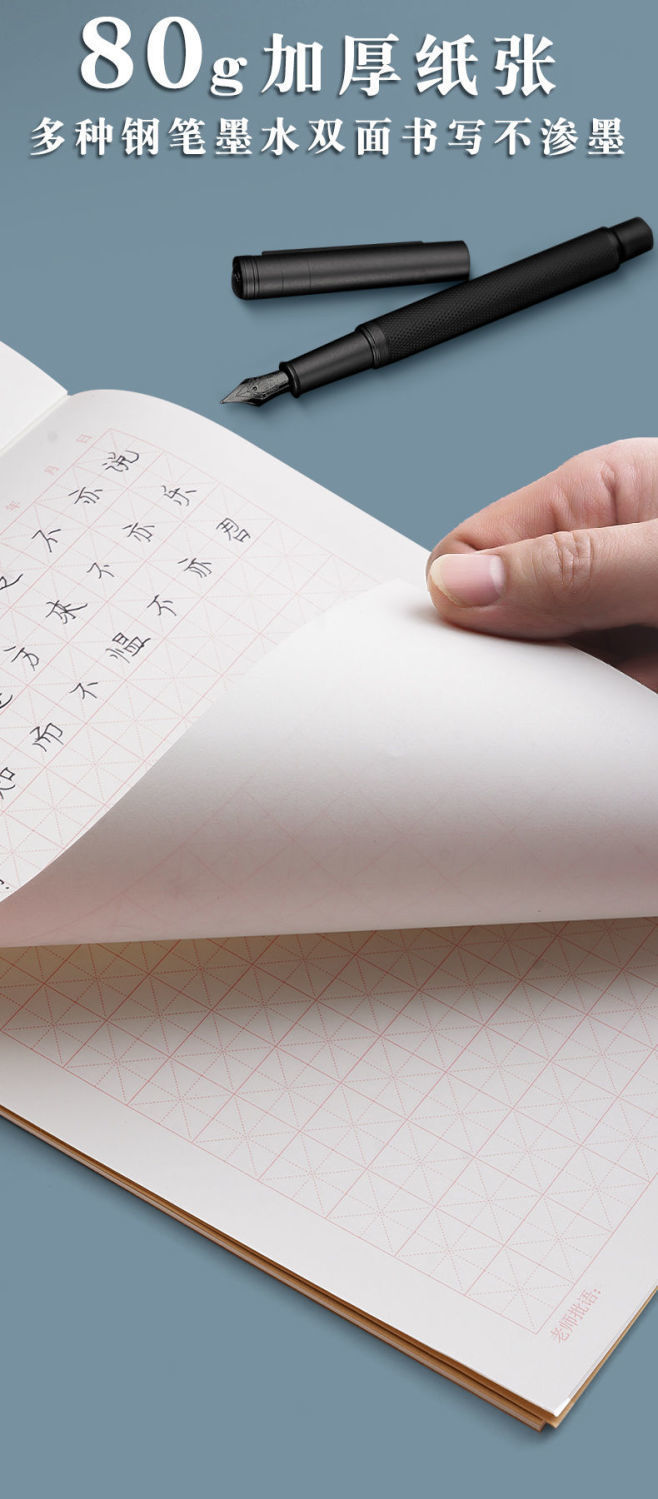 80g加厚纸张
多种钢笔墨水双面书写不渗墨
年 月 日
不亦说
方來不亦乐
知而不愠不亦君
老师批语：